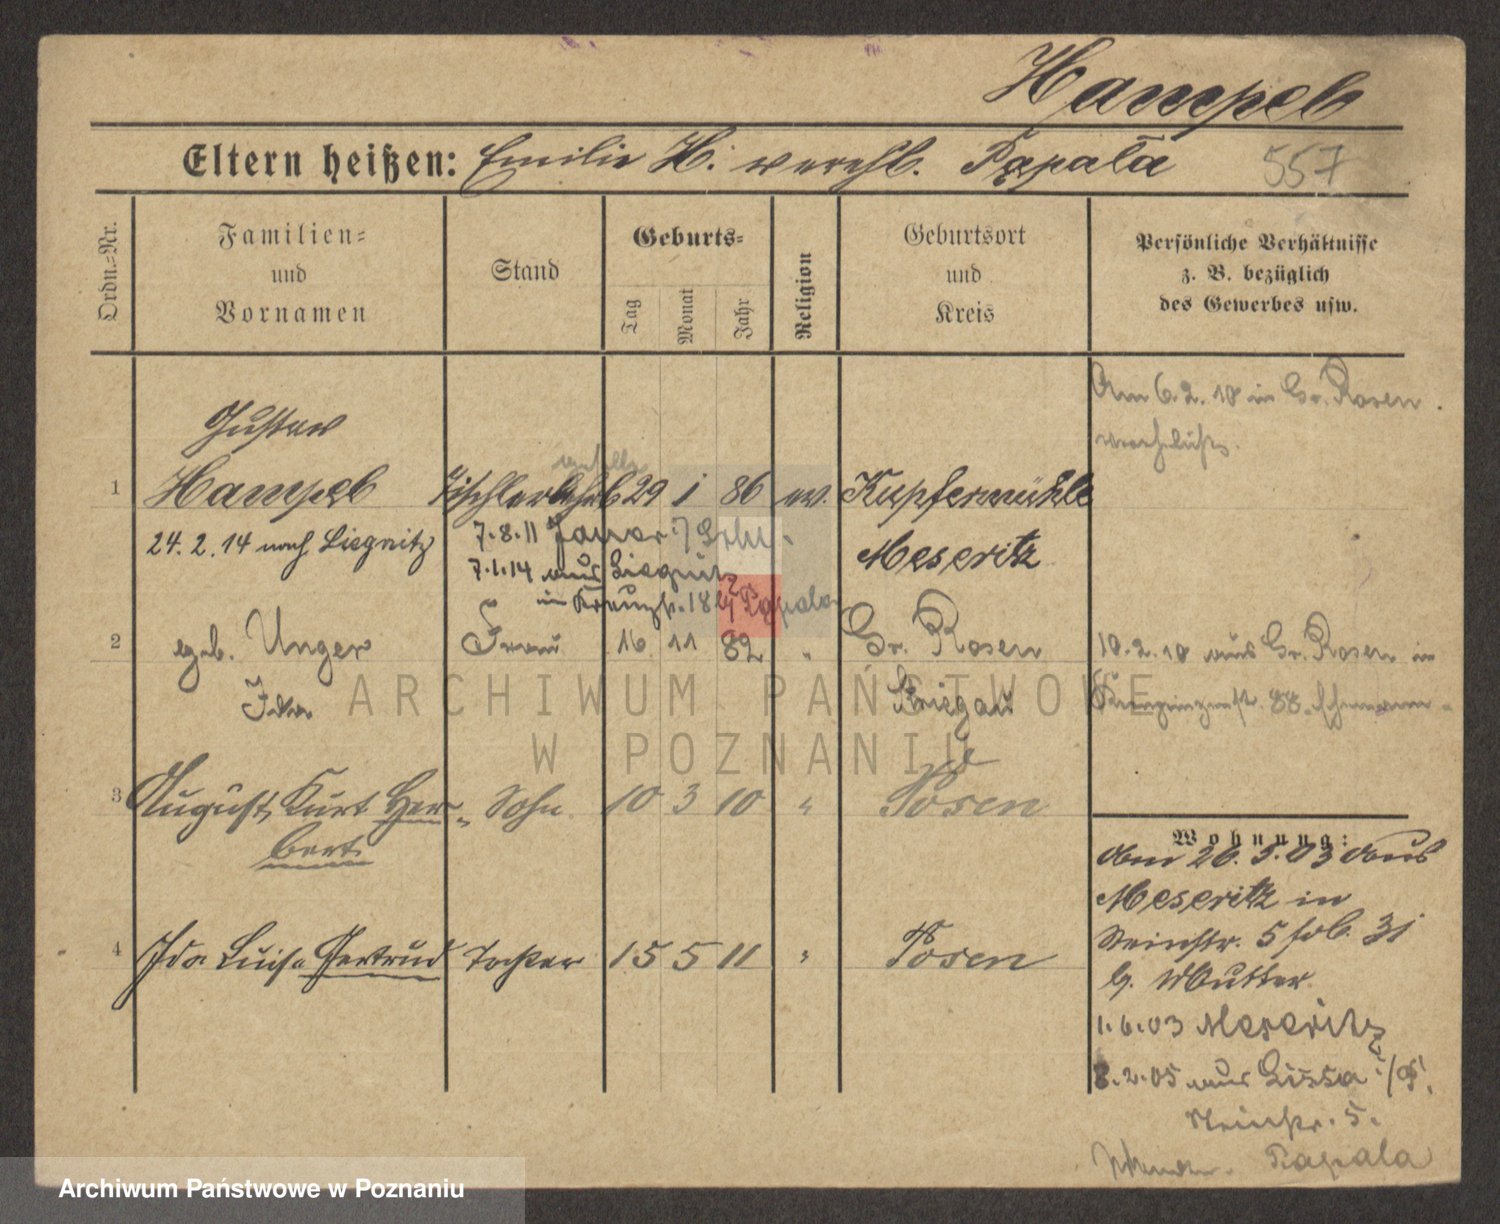 Hampel
Eltern heißen: Emilie H. verehl. Papala 557
Ordn.-Nr.
Familien-
und
Vornamen
Stand
Geburts-
Tag
Monat
Jahr
Religion
Geburtsort
und
Kreis
Persönliche Verhältnisse
z. B. bezüglich
des Gewerbes usw.
Am 6.2.10 in Gr. Rosen
Gustav
1 Hampel Tischlerlehrl 29 1 86 ev. Kupfermühle
24.2.14 nach Liegnitz
7.8.11 Jauer
Meseritz
7.1.14 aus Liegnitz
in Papala
2 geb. Unger Frau 16 11 82 " Gr. Rosen
Ida
Striegau
10.2.10 aus Gr. Rosen in
88
3 August, Kurt Her- Sohn 10 3 10 " Posen
bert
Wohnung:
Am 26.5.03 aus
Meseritz in
Steinstr. 5
b. Mutter
4 Ida Luise Gertrud Tochter 15 5 11 " Posen
1.6.03 Meseritz
8.2.05 aus Lissa i/P.
Steinstr. 5.
Papala
ARCHIWUM PAŃSTWOWE
W POZNANIU
Archiwum Państwowe w Poznaniu